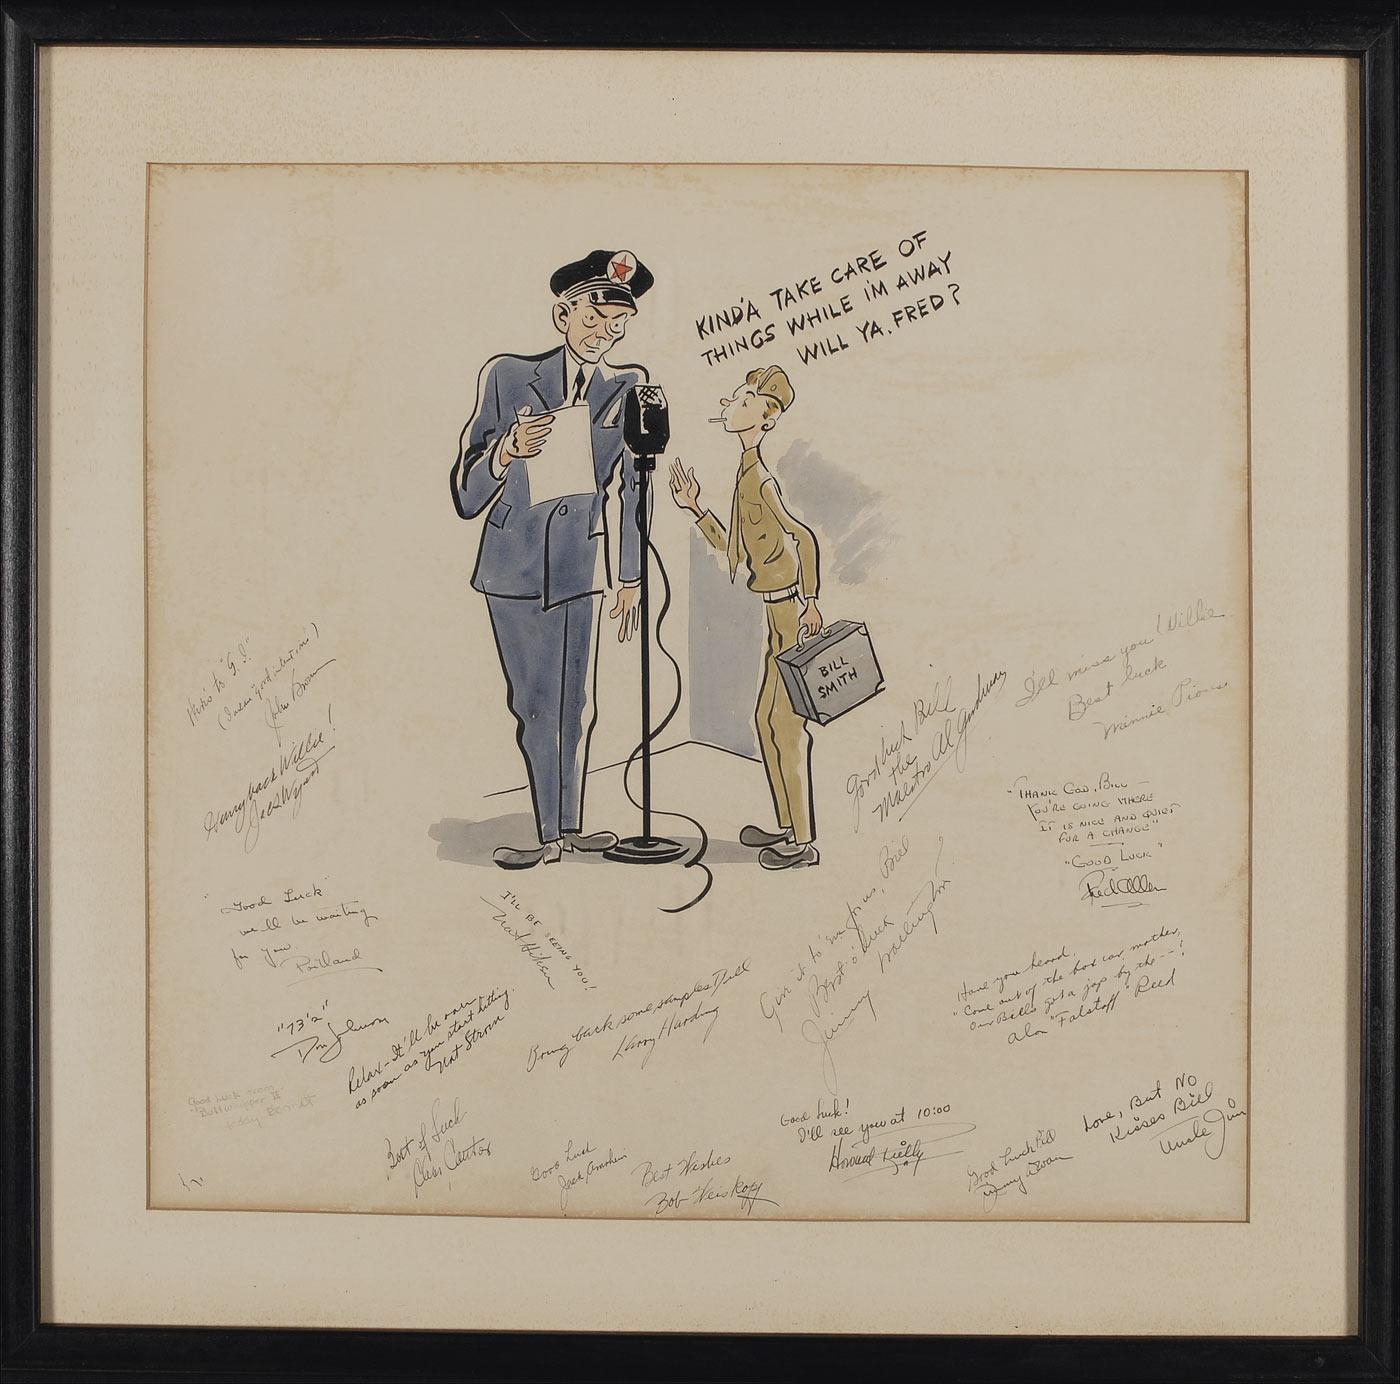 KIND'A TAKE CARE OF
THINGS WHILE I'M AWAY
WILL YA, FRED?
BILL
SMITH
Here's to "G.I."
(I mean "good intentions")
John Brown
Hurry back Willie!
Jack Wyatt
"Good Luck"
we'll be waiting
for you.
Portland
"73's"
Don Johnson
I'LL BE SEEING YOU!
Nat Hiken
Relax - It'll be over
as soon as you start hitting.
Nat Strom
Good Luck from
Best of Luck
Cantor
Good Luck
Jack
Best Wishes
Bob Weiskopf
Bring back some samples Bill
Larry Harding
Good luck Bill
the
Maestro Al Goodman
I'll miss you Willie
Best luck
Minnie Pious
"THANK GOD, BILL —
YOU'RE GOING WHERE
IT IS NICE AND QUIET
FOR A CHANGE"
"GOOD LUCK"
Fred Allen
Give it to 'em for us, Bill
Best o' luck
Jimmy Wallington
Have you heard.
"Come out of the box car, mother,
Our Bill's got a jap by the --!
Alan "Falstaff" Reed
Good Luck!
I'll see you at 10:00
Howard Reilly
Good Luck Bill
Love, But No
Kisses Bill
Uncle Jim